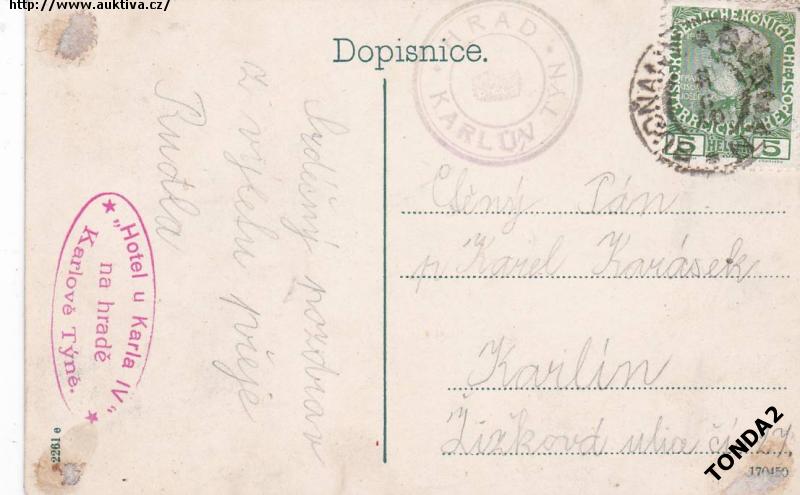 http://www.auktiva.cz/
Dopisnice.
HRAD
KARLŮV TÝN
5 HELLER 5
Srdečný pozdrav
z výletu přeje
Rudla
Ctěný Pán
p Karel Karásek
Karlín
Žižkova ulice čís 27,
„Hotel u Karla IV“
na hradě
Karlově Týně.
2261 e
170450
TONDA2